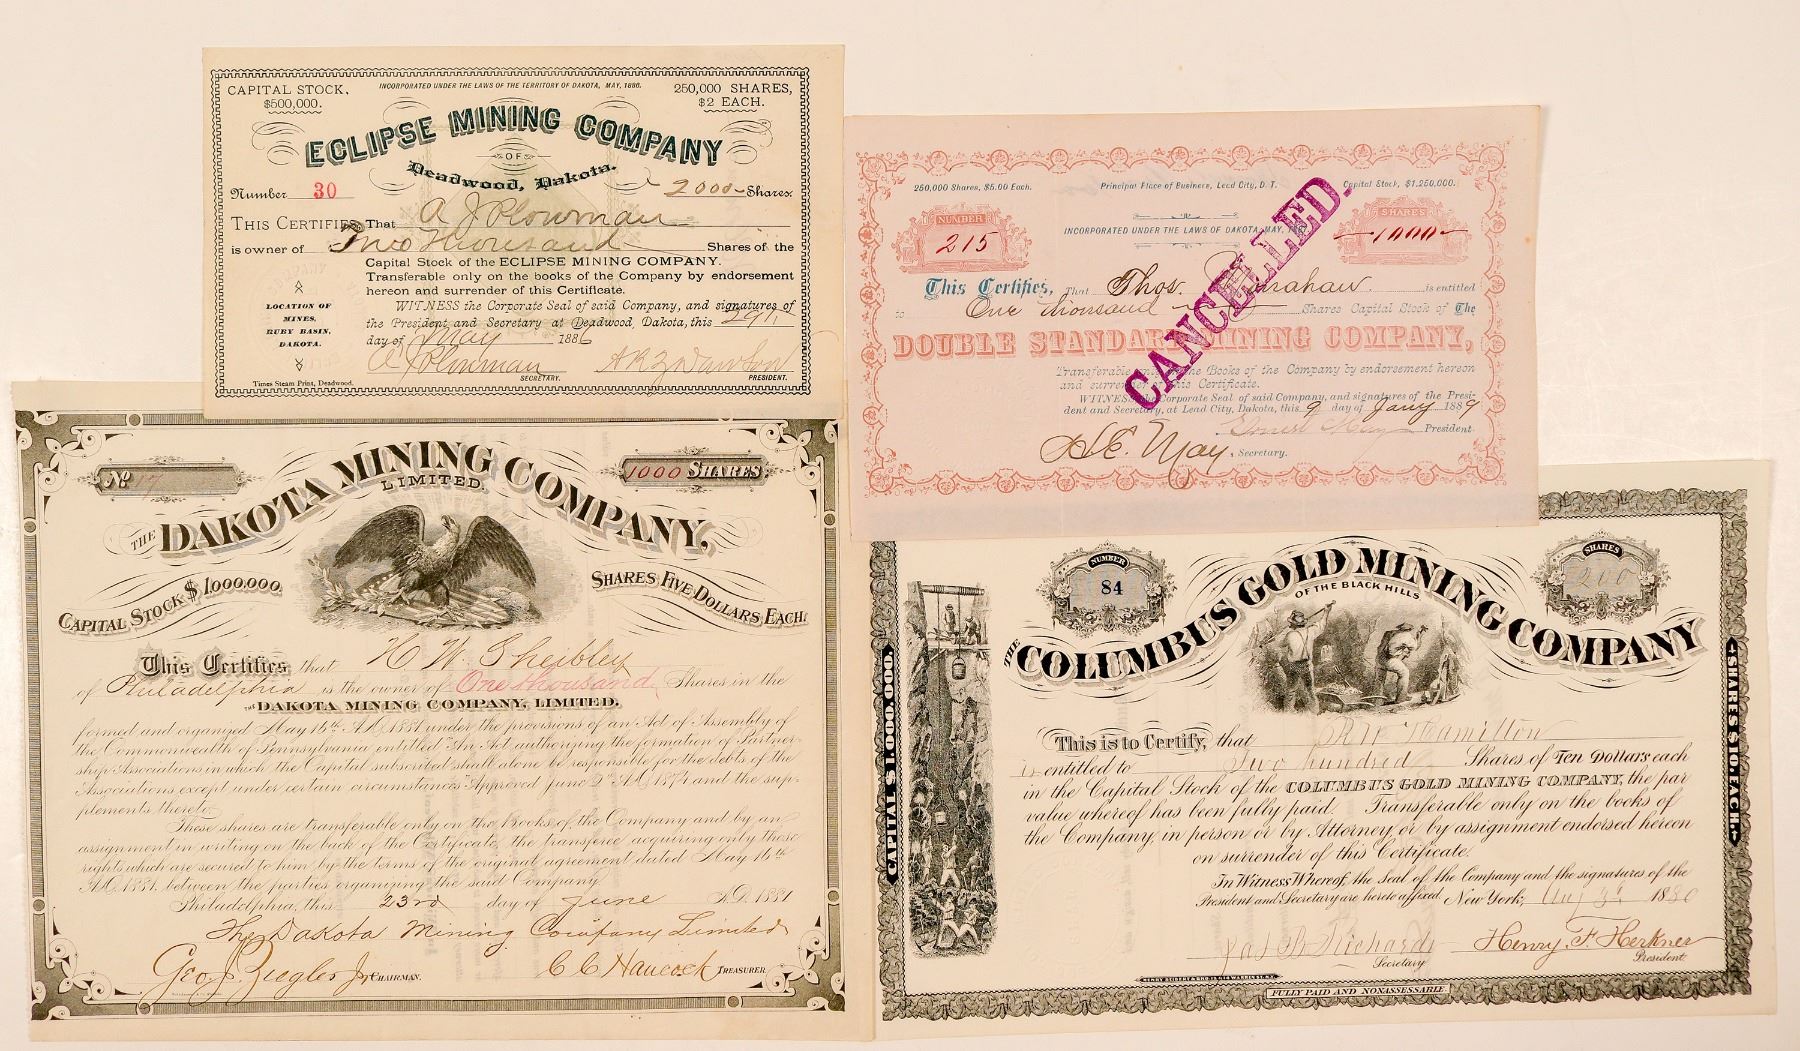 CAPITAL STOCK, $500,000.
INCORPORATED UNDER THE LAWS OF THE TERRITORY OF DAKOTA, MAY, 1886.
250,000 SHARES, $2 EACH.
ECLIPSE MINING COMPANY
OF
Deadwood, Dakota.
Number 30
2000 Shares.
THIS CERTIFIES That A J Plowman
is owner of Two Thousand Shares of the
Capital Stock of the ECLIPSE MINING COMPANY.
Transferable only on the books of the Company by endorsement
hereon and surrender of this Certificate.
WITNESS the Corporate Seal of said Company, and signatures of
the President and Secretary at Deadwood, Dakota, this 29th
day of May 1886
LOCATION OF
MINES,
RUBY BASIN,
DAKOTA.
A J Plowman
SECRETARY.
PRESIDENT.
Times Steam Print, Deadwood.
250,000 Shares, $5.00 Each.
Principal Place of Business, Lead City, D. T.
Capital Stock, $1,250,000.
NUMBER
215
SHARES
1000
INCORPORATED UNDER THE LAWS OF DAKOTA, MAY,
This Certifies, That Thos. is entitled
to One Thousand Shares Capital Stock of The
DOUBLE STANDARD MINING COMPANY,
Transferable only on the Books of the Company by endorsement hereon
and surrender of this Certificate.
WITNESS the Corporate Seal of said Company, and signatures of the Presi-
dent and Secretary, at Lead City, Dakota, this 9 day of Jany 1889
Ernest May President.
H E. May, Secretary.
CANCELLED.
No 17
1000 SHARES
THE DAKOTA MINING COMPANY,
LIMITED.
CAPITAL STOCK $1,000,000.
SHARES FIVE DOLLARS EACH.
This Certifies that H W Sheibley
of Philadelphia is the owner of One thousand Shares in the
THE DAKOTA MINING COMPANY, LIMITED.
formed and organized May 16th A.D. 1881 under the provisions of an Act of Assembly of
the Commonwealth of Pennsylvania entitled "An Act authorizing the formation of Partner-
ship Associations in which the Capital subscribed shall alone be responsible for the debts of the
Associations except under certain circumstances" Approved June 2nd A.D. 1874 and the sup-
plements thereto.
These shares are transferable only on the Books of the Company and by an
assignment in writing on the back of the Certificate, the transferee acquiring only those
rights which are secured to him by the terms of the original agreement dated May 16th
A.D. 1881, between the parties organizing the said Company.
Philadelphia, this 23rd day of June A.D. 1881
The Dakota Mining Company Limited
Geo J Ziegler Jr CHAIRMAN.
C C Hancock TREASURER.
NUMBER
84
SHARES
200
THE COLUMBUS GOLD MINING COMPANY
OF THE BLACK HILLS
CAPITAL $1,000,000.
SHARES $10. EACH.
This is to Certify, that R W Hamilton
is entitled to Two hundred Shares of Ten Dollars each
in the Capital Stock of the COLUMBUS GOLD MINING COMPANY, the par
value whereof has been fully paid. Transferable only on the books of
the Company, in person or by Attorney, or by assignment endorsed hereon
on surrender of this Certificate.
In Witness Whereof, the Seal of the Company and the signatures of the
President and Secretary are hereto affixed. New York, Aug 3d 1880
Jas B Richards
Secretary
Henry F. Herkner
President.
FULLY PAID AND NONASSESSABLE.